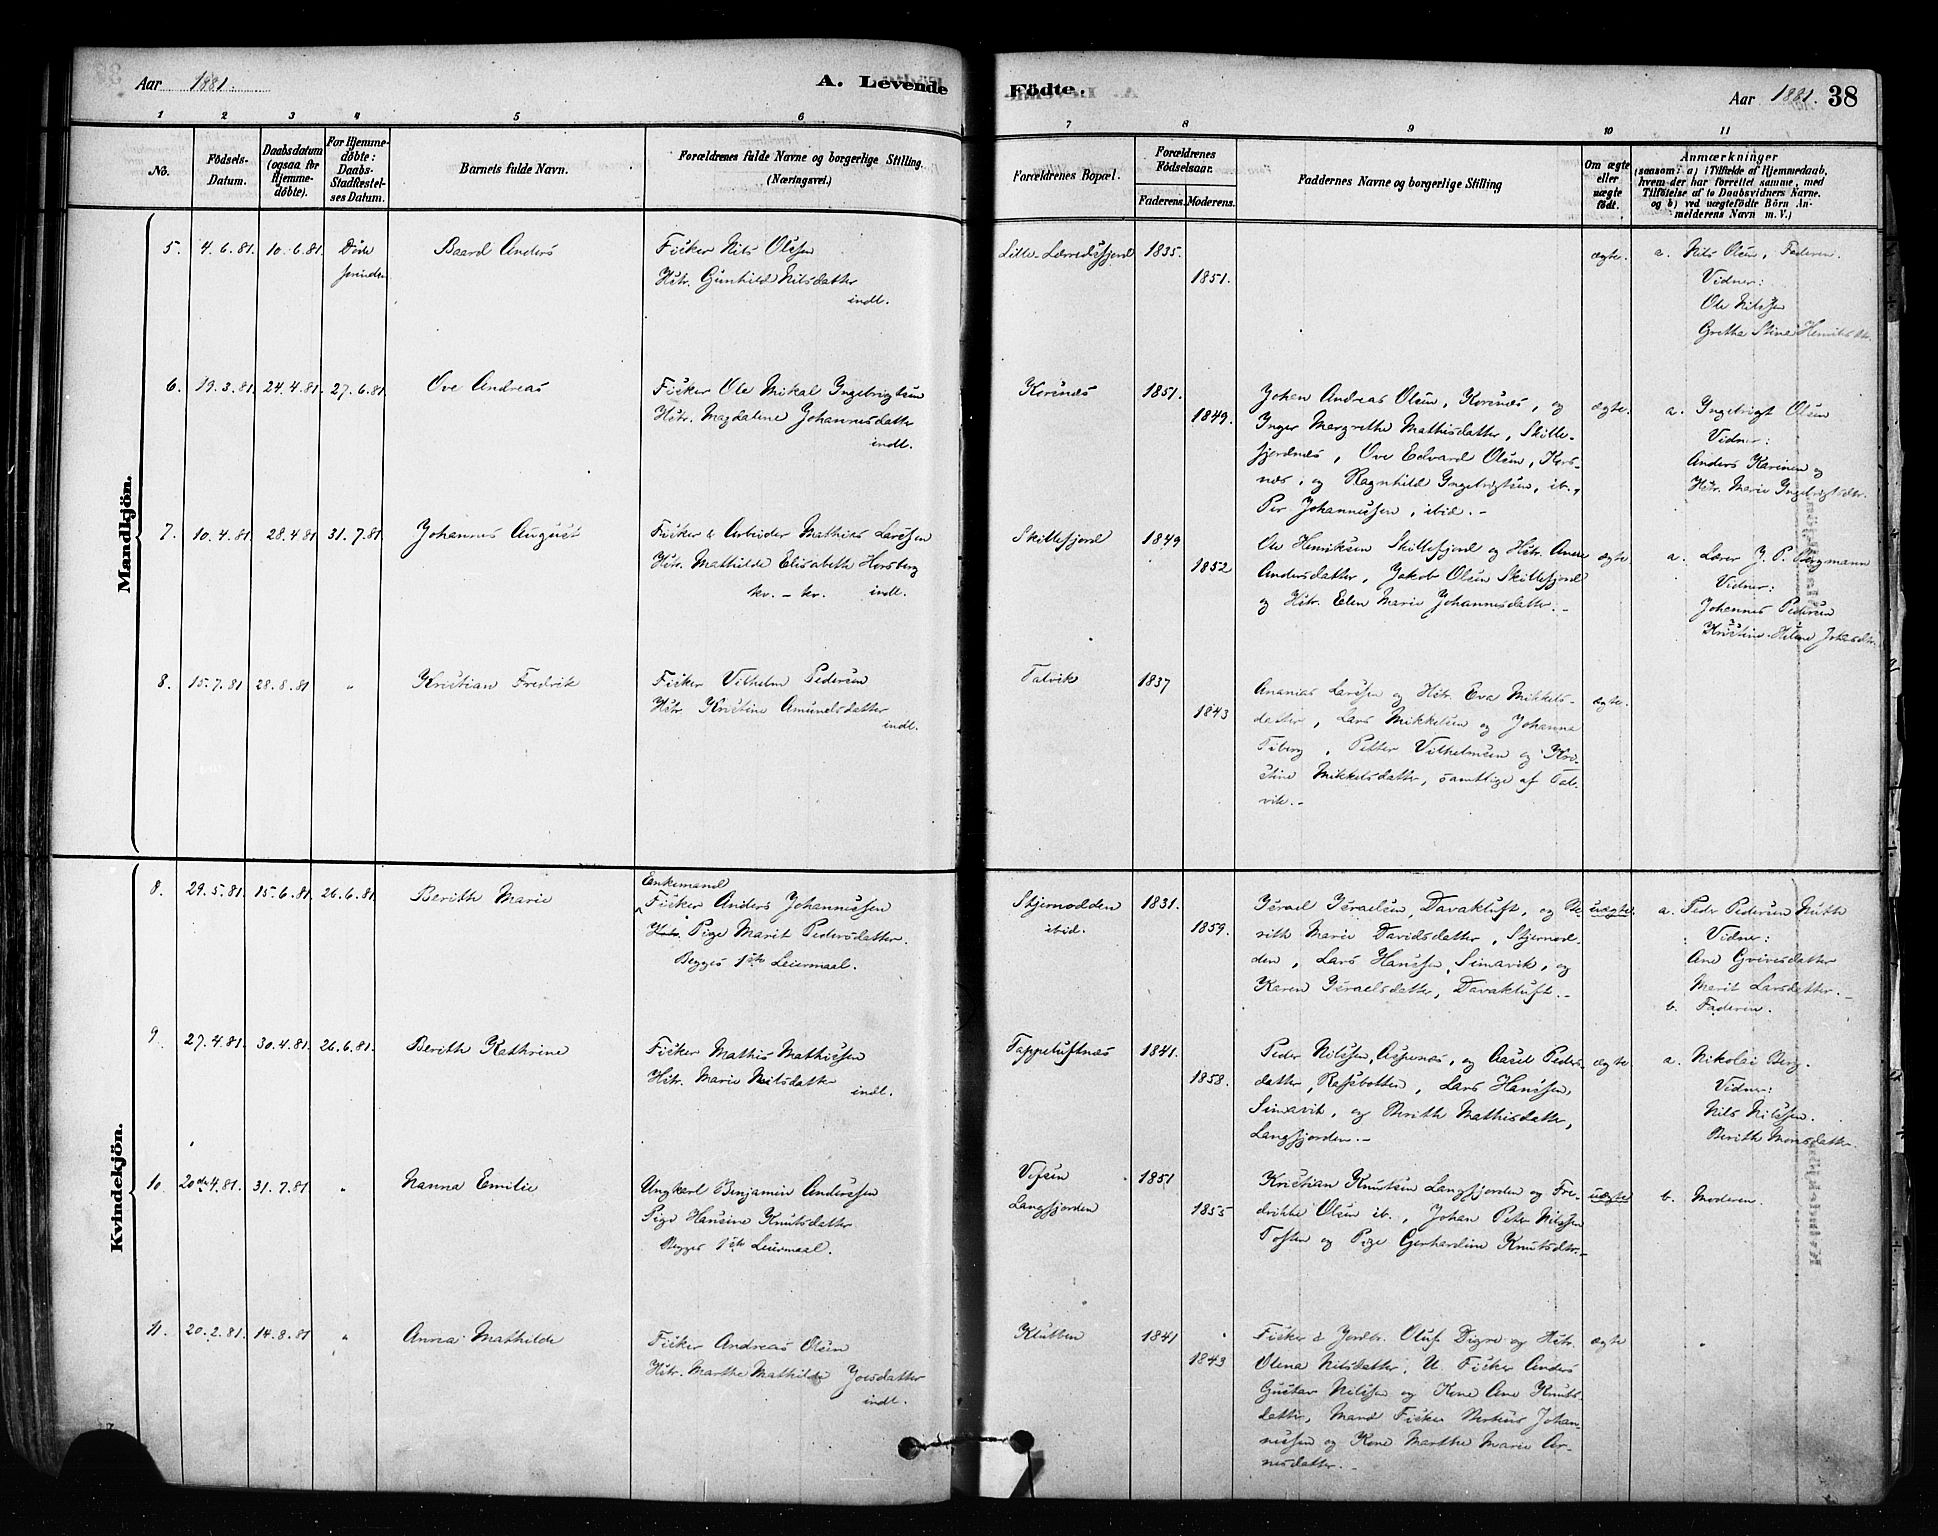 Aar 1881. A. Levende Födte. Aar 1881. 38
1 2 3 4 5 6 7 8 9 10 11
No.
Födsels-
Datum.
Daabsdatum
(ogsaa for
Hjemme-
döbte).
For Hjemme-
döbte:
Daabs-
Stadfestel-
ses Datum.
Barnets fulde Navn.
Forældrenes fulde Navne og borgerlige Stilling.
(Næringsvei.)
Forældrenes Bopæl.
Forældrenes
Födselsaar.
Faderens. Moderens.
Faddernes Navne og borgerlige Stilling
Om ægte
eller
uægte
födt.
Anmærkninger
(saasom: a) i Tilfælde af Hjemmedaab,
hvem der har forrettet samme, med
Tilföielse af to Daabsvidners Navne.
og b) ved uægtefödte Börn An-
melderens Navn m. V.)
Mandkjön.
5. 4.6.81. 10.6.81. Döde
forinden
Baard Anders
Fisker Nils Olsen
Hstr. Gunhild Nilsdatter
indl.
Lille-Lerredsfjord 1835.
1851.
ægte.
a. Nils Olsen, Faderen.
Vidner:
Ole Nilssen
Grethe Stine Henriksdtr.
6. 19.3.81. 24.4.81. 27.6.81.
Ove Andreas
Fisker Ole Mikal Ingebrigtsen
Hstr. Magdalene Johannesdatter
indl.
Korsnæs 1851.
1849.
Johan Andreas Olsen, Korsnæs, og
Inger Margrethe Mathisdatter, Skille-
fjordnæs, Ove Edvard Olsen, Kors-
næs, og Ragnhild Ingebrigtsen, ib.,
Per Johannessen, ibid.-
ægte.
a. Ingebrigt Olsen
Vidner:
Anders Karinen og
Hstr. Marie Ingebrigtsdtr.
7. 10.4.81 28.4.81 31.7.81.
Johannes August
Fisker & Arbeider Mathias Larssen
Hstr. Mathilde Elisabeth Horsberg
kv. - kv. indl.
Skillefjord 1849
1852
Ole Henriksen Skillefjord og Hstr. Anne
Andersdatter, Jakob Olsen Skillefjord
og Hstr. Elen Marie Johannesdatter.-
ægte
a. Lærer J. P. Bergmann
Vidner:
Johannes Pedersen
Kristine Helene Johasdtr.
8. 15.7.81 28.8.81 "
Kristian Fredrik
Fisker Vilhelm Pedersen
Hstr. Kristine Amundsdatter
indl.
Talvik 1837
1843
Ananias Larssen og Hstr. Eva Mikkels-
datter, Lars Mikkelsen og Johanna
Fiberg, Petter Vilhelmsen og Kri-
stine Mikkelsdatter, samtlige af Tal-
vik.-
ægte.
Kvindekjön.
8. 29.5.81. 15.6.81. 26.6.81.
Berith Marie
Enkemand
Fisker Anders Johannessen
Hstr. Pige Marit Pedersdatter.
Begges 1ste Leiermaal.
Stjernodden 1831.
ibid. 1859.
Israel Israelsen, Davakluft, og Be-
rith Marie Davidsdatter, Stjernod-
den, Lars Hanssen, Simavik, og
Karen Israelsdatter, Davakluft.-
uægte.
a. Peder Pedersen Mutte
Vidner:
Ane Gvivesdatter
Marit Larsdatter.-
b. Faderen.
9 27.4.81. 30.4.81. 26.6.81.
Berith Kathrine
Fisker Mathis Mathissen
Hstr. Marie Nilsdatter
indl.
Tappeluftnæs 1841.
1858.
Peder Nilssen, Aspenæs, og Aasel Peders-
datter, Rafsbotten, Lars Hanssen,
Simavik, og Berith Mathisdatter,
Langfjorden.-
ægte
a. Nikolai Berg.
Vidner:
Nils Nilssen.
Berith Monsdatter.
10. 20de 4.81. 31.7.81 "
Nanna Emilie
Ungkarl Benjamin Anderssen
Pige Hansine Knutsdatter
Begges 1ste Leiermaal.
Vefsen 1851
Langfjorden 1855
Kristian Knutsen Langfjorden og Fre-
drikke Olsen ib., Johan Peter Nilssen
Toften og Pige Gerhardine Knutsdtr.-
uægte
b. Moderen.
11. 20.2.81. 14.8.81 "
Anna Mathilde
Fisker Andreas Olsen
Hstr. Marthe Mathilde Joisdatter
indl.
Klubben 1841
1843
Fisker & Jordbr. Oluf Digre og Hstr.
Olena Nilsdatter, U. Fisker Anders
Gustav Nilssen og Kone Ane Knuts-
datter, Mand Fisker Nerkus Johan-
nessen og Kone Marthe Marie Ar-
nesdatter.-
ægte
"